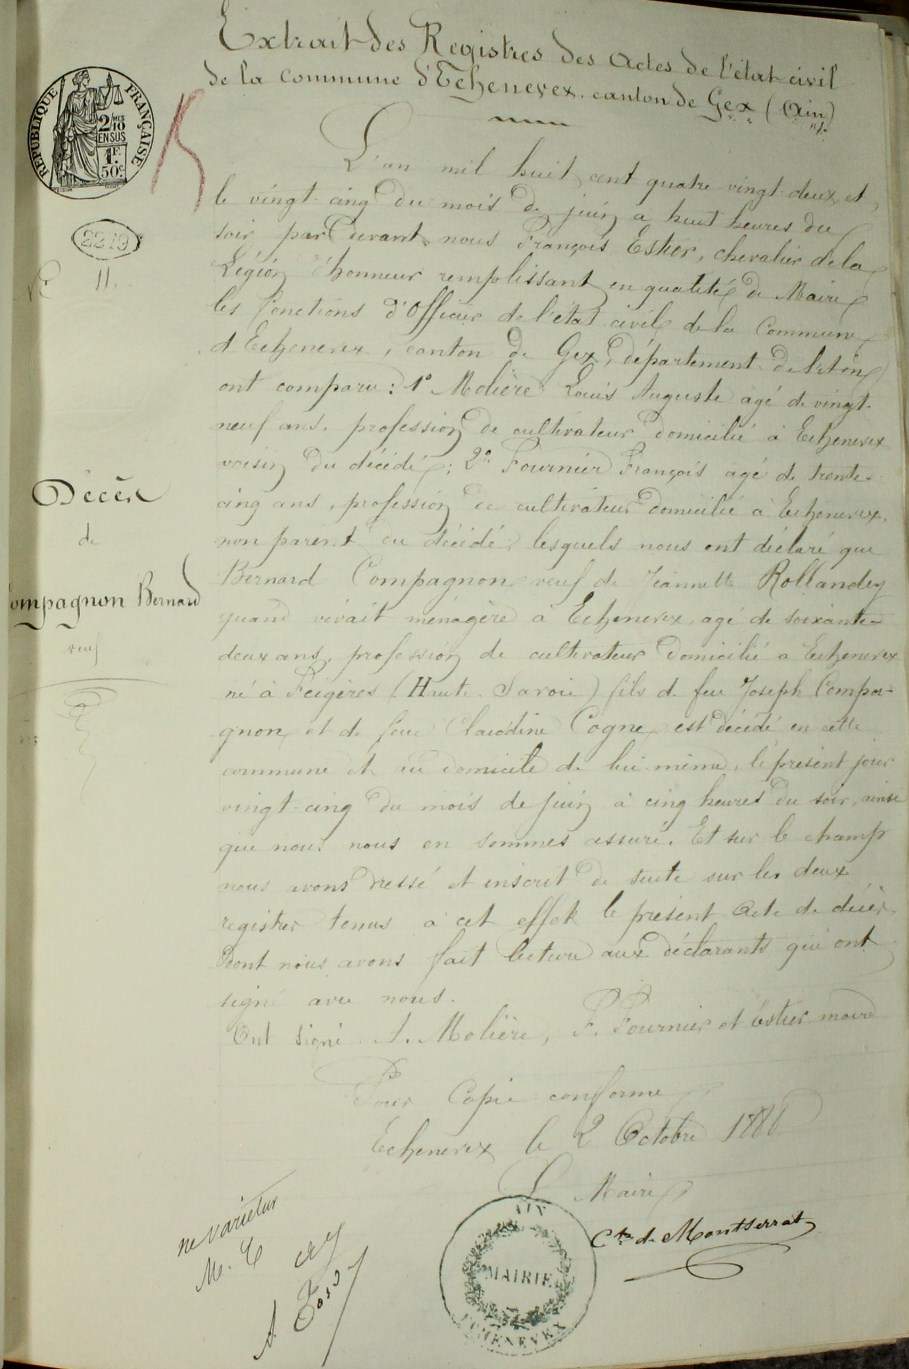 Extrait des Registres des Actes de l'état civil
de la commune d'Echenevex. canton de Gex (Ain)
RÉPUBLIQUE FRANÇAISE
2/10 EN SUS
1F. 50c
2219
11.
L'an mil huit cent quatre vingt deux et
le vingt cinq du mois de juin a huit heures du
soir par devant nous François Estier, chevalier de la
Légion d'honneur remplissant en qualité de Maire
les fonctions d'Officier de l'état civil de la Commune
d'Echenevex, canton de Gex, département de l'Ain
ont comparu : 1° Molière Louis Auguste âgé de vingt-
neuf ans, profession de cultivateur domicilié à Echenevex
voisin du décédé ; 2° Fournier François âgé de trente-
cinq ans, profession de cultivateur domicilié à Echenevex,
non parent du décédé, lesquels nous ont déclaré que
Bernard Compagnon veuf de Jeannette Rollandez
quand vivait ménagère à Echenevex, agé de soixante-
deux ans, profession de cultivateur domicilié à Echenevex
né à Feigères (Haute Savoie) fils de feu Joseph Compa-
gnon et de feue Claudine Cogne, est décédé en cette
commune et au domicile de lui-même, le présent jour
vingt-cinq du mois de juin à cinq heures du soir, ainsi
que nous nous en sommes assuré. Et sur le champ
nous avons dressé et inscrit de suite sur les deux
registres tenus à cet effet le présent Acte de décès
Dont nous avons fait lecture aux déclarants qui ont
signé avec nous.
Ont signé A. Molière, F. Fournier et Estier maire
Décès
de
Compagnon Bernard
veuf
Pour Copie conforme
Echenevex le 2 Octobre 1886
Le Maire
Cte de Montserrat
AIN
MAIRIE
ECHENEVEX
ne varietur